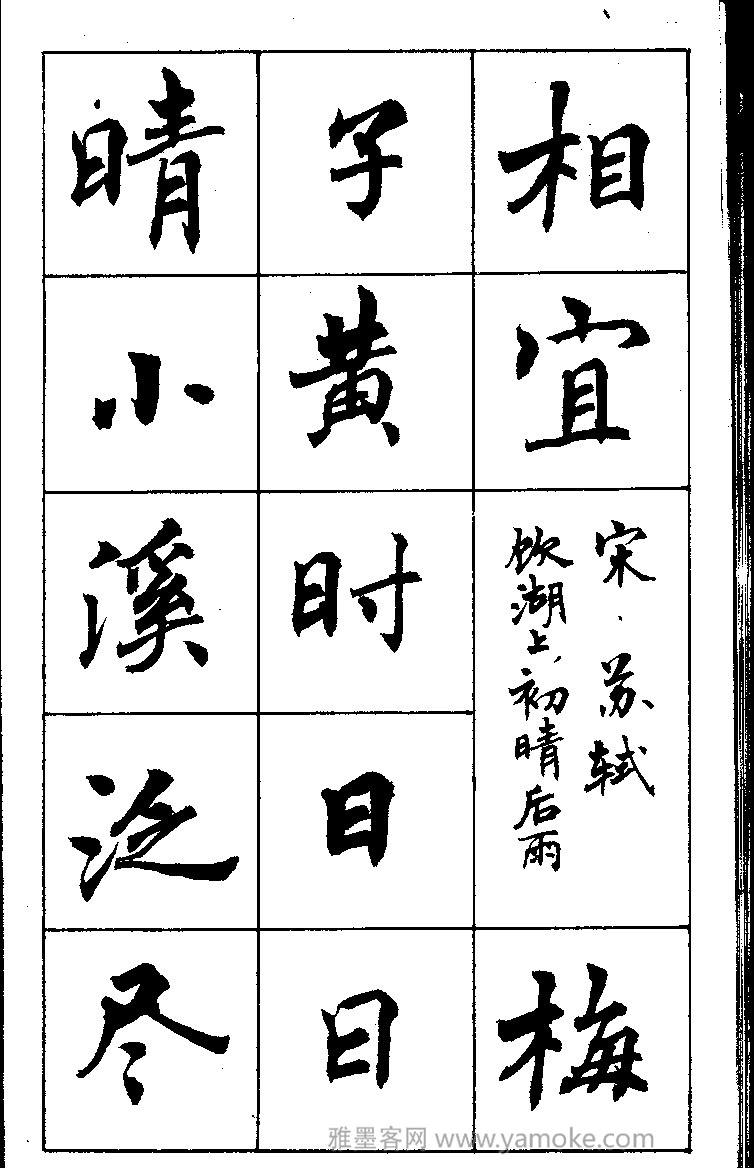 相宜
宋·苏轼
饮湖上,初晴后雨
梅
子黄时日日
晴小溪泛尽
雅墨客网 www.yamoke.com